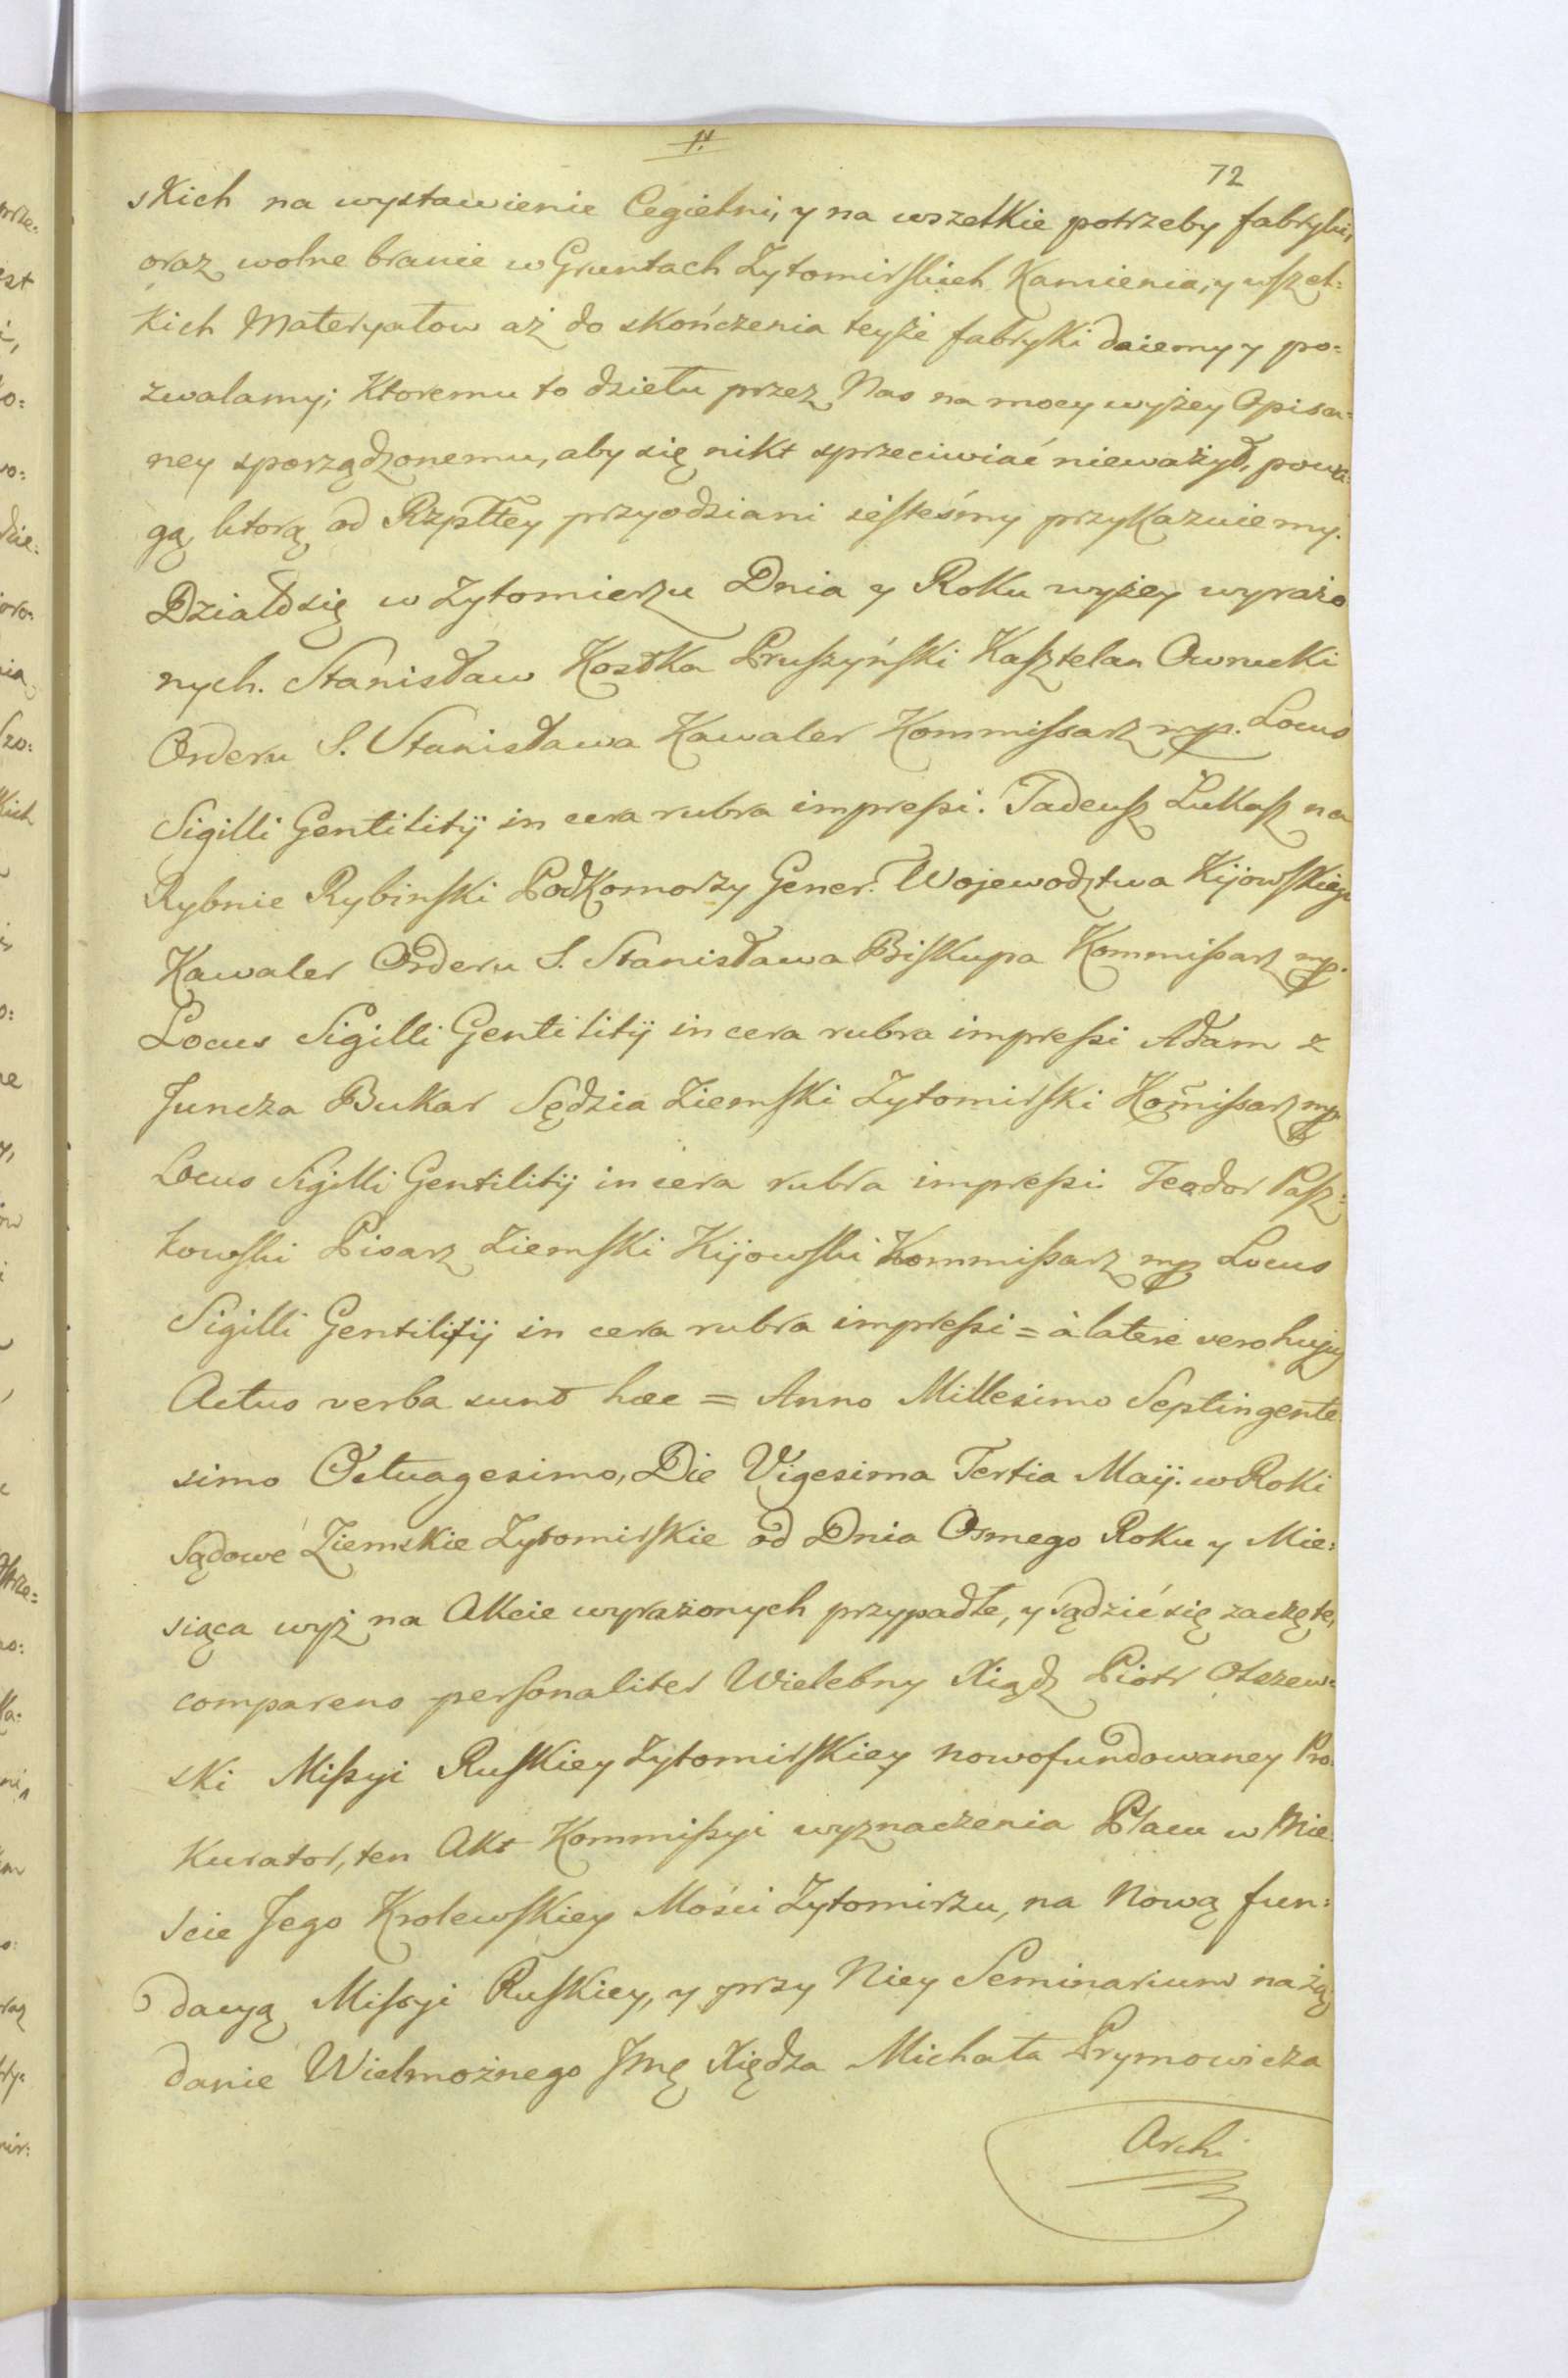 11.
72
skich na wystawienie Cegielni, y na wszelkie potrzeby fabryki,
oraz wolne branie w Gruntach Zytomirskich Kamienia, y wszel=
kich Materyałow aż do skończenia teyże fabryki daiemy y po=
zwalamy; Ktoremu to dziełu przez Nas na mocy wyżey Opisa=
ney sporządzonemu, aby się nikt sprzeciwiać nieważył, powa=
gą ktorą od Rzpltey przyodziani iesteśmy przykazuiemy.
Działo się w Zytomierzu Dnia y Roku wyżey wyrażo
nych. Stanisław Kostka Pruszyński Kasztelan Owrucki
Orderu S. Stanisława Kawaler Kommissarz mp. Locus
Sigilli Gentilitij in cera rubra impressi. Tadeusz Łukasz na
Rybnie Rybinski Podkomorzy Gener. Wojewodztwa Kijowskiego
Kawaler Orderu S. Stanisława Biskupa Kommissarz mp.
Locus Sigilli Gentilitij in cera rubra impressi Adam z
Juncza Bukar Sędzia Ziemski Zytomirski Kom̃issarz mp
Locus Sigilli Gentilitij in cera rubra impressi Teodor Pasz=
kowski Pisarz Ziemski Kijowski Kommissarz mp Locus
Sigilli Gentilitij in cera rubra impressi = à latere vero hujus
Actus verba sunt hæc = Anno Millesimo Septingente
simo Octuagesimo, Die Vigesima Tertia Maij. w Roki
Sądowe Ziemskie Zytomirskie od Dnia Osmego Roku y Mie=
siąca wyż na Akcie wyrażonych przypadłe, y sądzić się zaczęte,
comparens personaliter Wielebny Xiądz Piotr Olszew=
ski Missyi Ruskiey Zytomirskiey nowofundowaney Pro=
kurator, ten Akt Kommissyi wyznaczenia Placu w Mie
scie Jego Krolewskiey Mości Zytomirzu, na Nową fun=
dacyą Missyi Ruskiey, y przy Niey Seminarium na żą
danie Wielmożnego Jmę Xiędza Michała Prymowicza
Archi